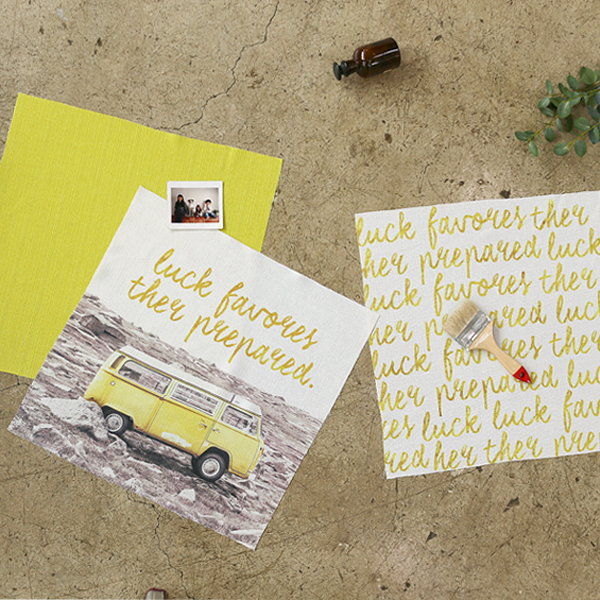 luck favores
ther prepared.
luck favores ther
her prepared luck
luck favores ther
her prepared luck
luck favores ther
her prepared luck
res luck luck fav
red her ther prep